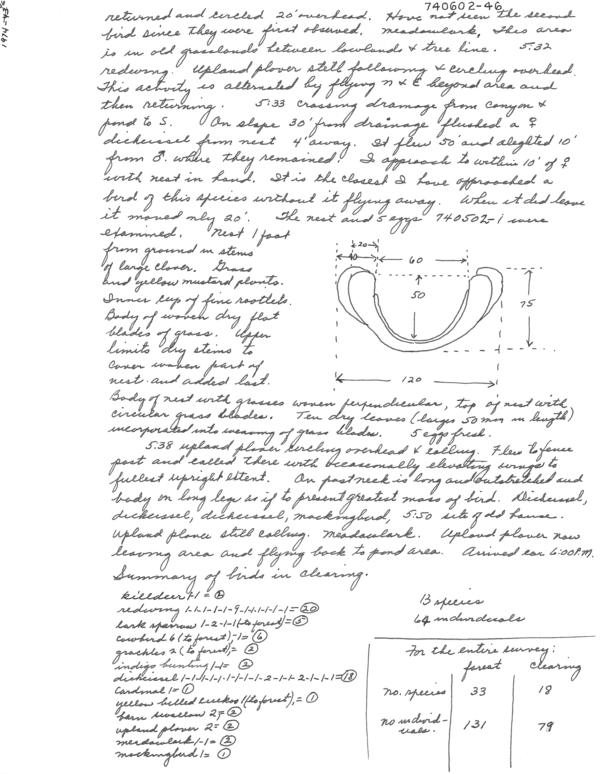 740602-46
returned and circled 20' overhead. Have not seen the second
bird since they were first observed. meadowlark, This area
is in old grasslands between lowlands & tree line. 5:32
redwing. Upland plover still following & circling overhead.
This activity is alternated by flying N & E beyond area and
then returning. 5:33 crossing drainage from canyon &
pond to S. On slope 30' from drainage flushed a ♀
dickcissel from nest 4' away. It flew 50' and alighted 10'
from ♂. where they remained! I approach to within 10' of ♀
with nest in hand. It is the closest I have approached a
bird of this species without it flying away. When it did leave
it moved only 20'. The nest and 5 eggs 740502-1 were
examined. Nest 1 foot
from ground in stems
of large clover. Grass
and yellow mustard plants.
Inner cup of fine rootlets.
Body of woven dry flat
blades of grass. Upper
limits dry stems to
cover woven part of
nest and added last.
20
40
60
50
75
120
Body of nest with grasses woven perpendicular, top of nest with
circular grass blades. Ten dry leaves (larges 50 mm in length)
incorporated into weaving of grass blades. 5 eggs fresh.
5:38 upland plover circling overhead & calling. Flew to fence
post and called there with occasionally elevating wings to
fullest upright extent. On post neck is long and outstretched and
body on long legs as if to present greatest mass of bird. Dickcissel,
dickcissel, dickcissel, mockingbird, 5:50 site of old house.
Upland plover still calling. Meadowlark. Upland plover now
leaving area and flying back to pond area. Arrived car 6:00 P.M.
Summary of birds in clearing.
killdeer 1-1 = ②
redwing = ⑳
lark sparrow 1-2-1-1 (to forest) = ⑤
cowbird 6 (to forest) = ⑥
grackles 2 (to forest) = ②
indigo bunting 1-1 = ②
dickcissel = ⑱
Cardinal 1 = ①
yellow billed cuckoo 1 (to forest) = ①
barn swallow 2 = ②
upland plover 2 = ②
meadowlark 1-1 = ②
mockingbird 1 = ①
13 species
64 individuals
For the entire survey:
forest clearing
no. species 33 18
no individ-
uals. 131 79